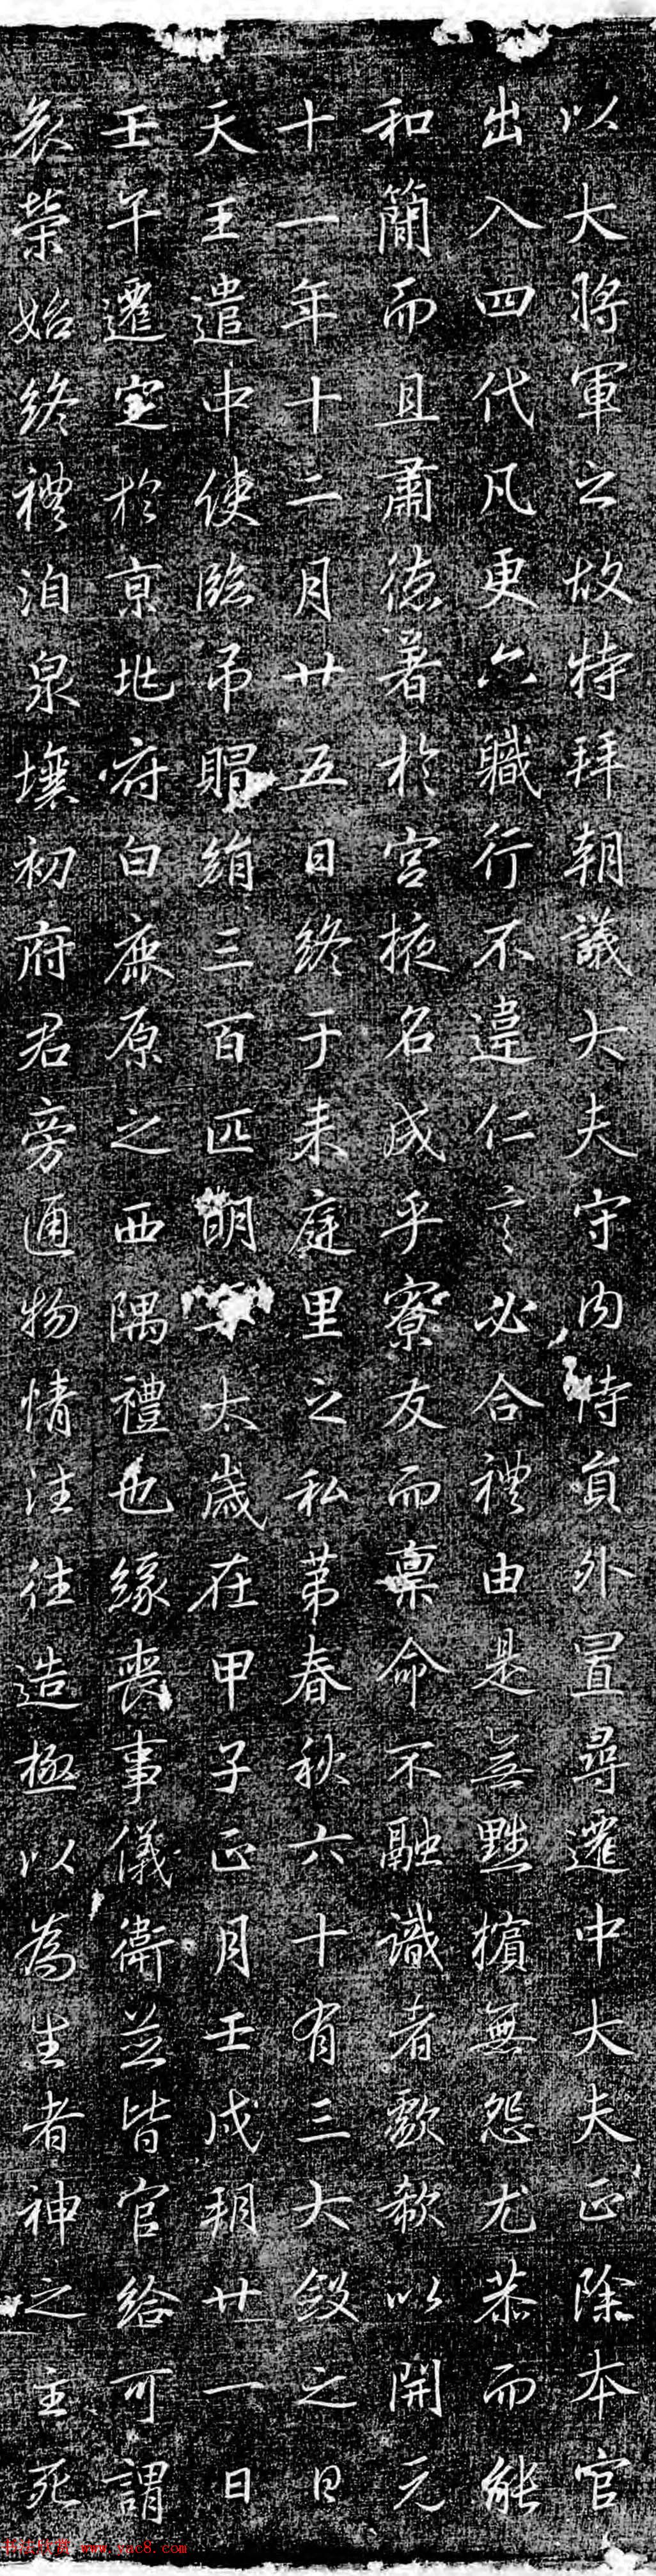 以大將軍之故特拜朝議大夫守內侍員外置尋遷中大夫正除本官
出入四代凡更六職行不違仁言必合禮由是無黜擯無怨尤恭而能
和簡而且肅德著於宮掖名成乎寮友而稟命不融識者歔欷以開元
十一年十二月廿五日終于来庭里之私苐春秋六十有三大殮之日
天王遣中使臨吊賜絹三百匹明年太歲在甲子正月壬戌朔廿一日
壬午遷窆於京地府白鹿原之西隅禮也緣喪事儀衛並皆官給可謂
哀榮始終禮洎泉壤初府君旁通物情洼往造極以為生者神之主死
www.yac8.com